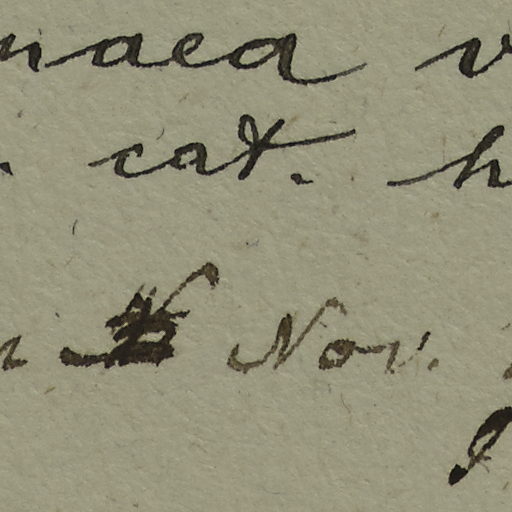 naea
cat. h
Nov.